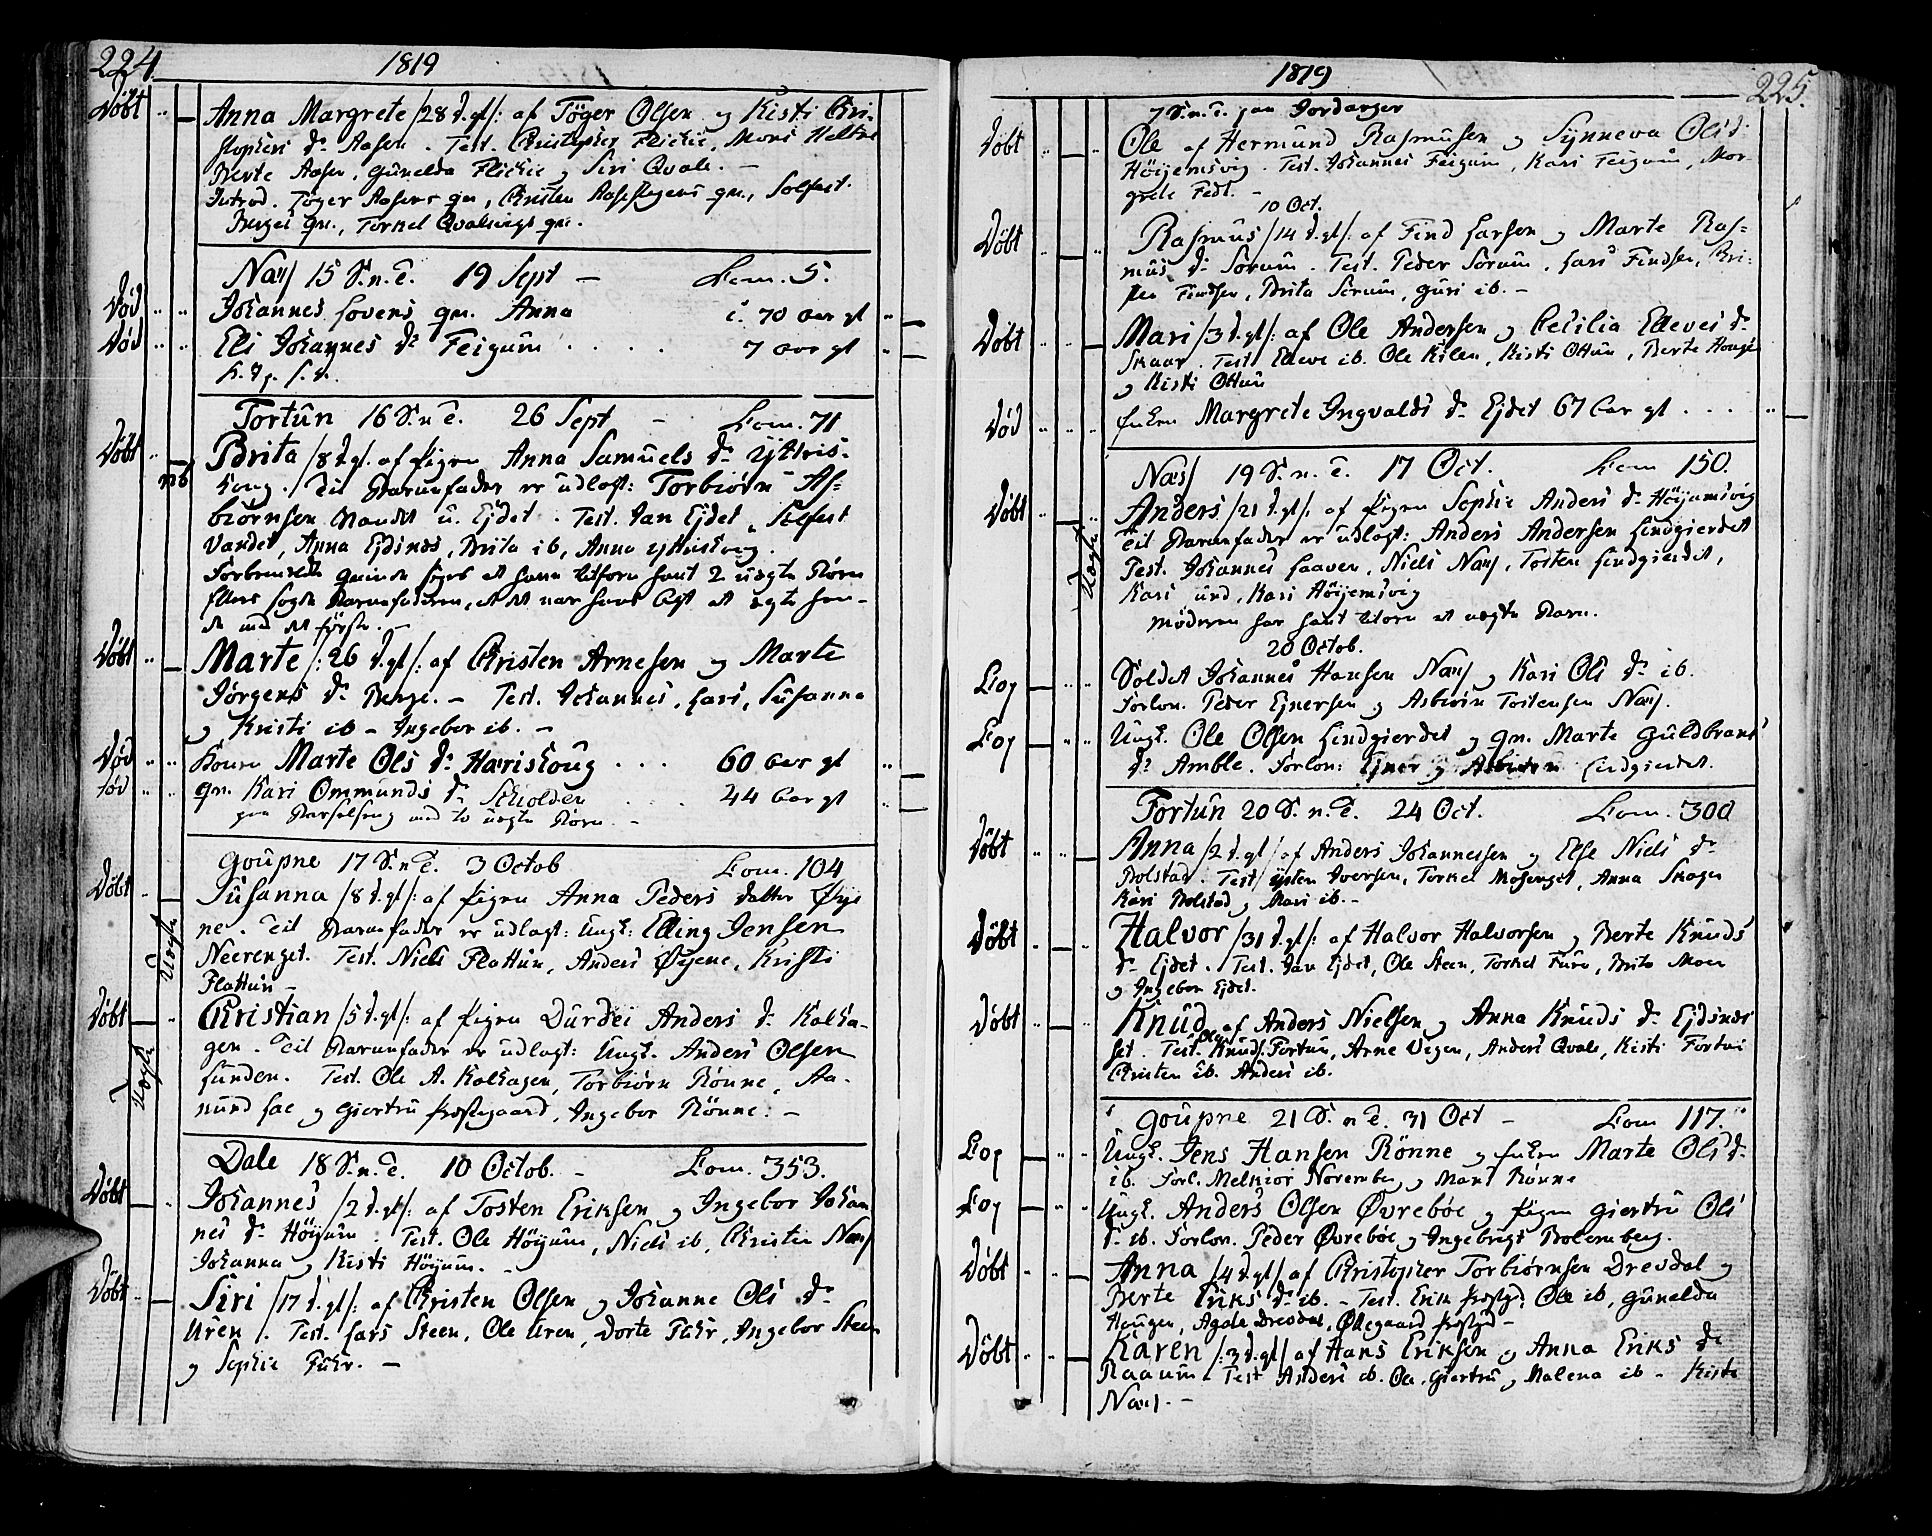 224. 1819
Døbt Anna Margrete /28 d. gl/: af Töger Olsen og Kisti Chri-
stophers Dr Aasen. Test. Christopher Flickie, Mons Helties
Berte Aasen, Gunelda Flickie og Siri Qvale. —
Introd. Töger Aasens qvi., Christen Aaseflagens qvi., Solfest
Berges qvi., Torkel Qvalsvigs qvi.
Næs 15 S. n. T. 19 Sept — Com. 5.
Død Johannes Lovens qvi. Anna i. 70 aar gl
Død Eli Johannes Dr Feigum . . . . 7 aar gl
Fortun 16 S. n T. 26 Sept — Com. 71
Døbt Brita /8 d. gl. af Pigen Anna Samuels Dr Yttris-
koug. Til Barnefader er udlagt: Torbiørn As-
biørnsen Vandet u. Ejdet. Test. Jan Ejdet, Solfest
Vandet, Anna Ejdsnes, Brita ib, Anna Yttriskoug.
Forbemeldte qvinde siges at have tilforn havt 2 uægte Børn
de med det første. —
Døbt Marte /: 26 d. gl/: af Christen Arnesen og Marte
Jørgens Dr Berge. — Test. Johannes, Lars, Susanna
og Kristi ib — Ingebor ib. —
Død Konen Marte Ols Dr Hæriskoug . . . 60 Aar gl
Død qvi. Kari Ommunds Dr Skiolden . . . 44 Aar gl
paa Barselseng med to uægte Børn. —
Goupne 17 S. n T. 3 Octob Com. 104
Døbt Susanna /8 d. gl/: af Pigen Anna Peders datter Øye
Uægte ne. Til Barnefader er udlagt: Ungk: Elling Jensen
Neerenget. Test. Niels Flattun, Anders Øyene, Kristi
Flattun —
Døbt Christian /5 d. gl/: af Pigen Durdei Anders Dr Kalha-
Uægte gen. Til Barnefader er udlagt: Ungk. Anders Olsen
Sunden. Test. Ole A. Kalhagen, Torbiørn Rönne, Aa-
mund Lae og Giertru Præstegaard, Ingebor Rönne. —
Dale 18 S. n. T. 10 Octob. — Com. 353.
Døbt Johannes /2 d. gl/: af Tosten Eriksen og Ingebor Johan
nes Dr Höyum. Test. Ole Höyum, Niels ib, Christen Næs
Johanna og Kisti Höyum. —
Døbt Siri /17 d. gl/: af Christen Olsen og Johanne Ols Dr
Uren. Test. Lars Steen, Ole Uren, Dorte Fuhr, Ingebor Steen
og Sophie Fuhr. —
1819 225.
7 S. n. T. paa Jordanger
Døbt Ole af Hermund Rasmusen og Synneva Ols d.
Höyjemsvig. Test. Johannes Feigum, Kari Feigum, Mar-
grete Fedt. —
10 Oct.
Døbt Rasmus /14 d. gl/: af Find Larsen og Marte Ras-
mus Dr Sorum. Test. Peder Sorum, Lars Findsen, Kri-
sten Findsen, Brita Sorum, Guri ib. —
Døbt Mari /3 d. gl/: af Ole Andersen og Cecilia Elleves Dr
Skaar. Test. Elleve ib. Ole Kilen, Kisti Ottum, Berte Houge
og Kisti Ottum
Død Enken Margrete Ingvalds Dr Ejdet 67 Aar gl . . .
Næs 19 S. n. T. 17 Oct. Com 150.
Døbt Anders /21 d. gl/: af Pigen Sophie Anders Dr Höyumsvig
Uægte Til Barnefader er udlagt: Anders Andersen Lindgierdet
Test. Johannes Laaven, Niels Næs, Tosten Lindgierdet,
Kari und, Kari Höyjemsvig
Moderen har havt tilforn et uægte Barn.
20 Octob.
Cop Soldat Johannes Hansen Næs og Kari Ols Dr ib.
Forlov. Peder Ejnersen og Asbiörn Tostensen Næs.
Cop Ungk. Ole Olsen Lindgierdet og qvi. Marte Guldbrans
Dr Amble. Forlov: Ejner og Lindgierdet.
Fortun 20 S. n. T. 24 Oct. Com. 300
Døbt Anna /2 d. gl/ af Anders Johannessen og Else Niels Dr
Bolstad. Test. Iversen, Torkel Moseuget, Anna Skagen
Kari Bolstad og Mari ib. —
Døbt Halvor /31 d. gl/: af Halvor Halvorsen og Berte Knuds
Dr Ejdet. Test. Jan Ejdet, Ole Steen, Torkel Fure, Brita Moen
og Ingebor Ejdet.
Døbt Knud af Anders Nielsen og Anna Knuds Dr Ejdsnes
Ole
Test. Knud Fortun, Arne Vegen, Anders Qvale, Kisti Fortun
Christen ib. Anders ib.
Goupne 21 S. n T. 31 Oct — Com 117.
Cop Ungk. Jens Hansen Rönne og Enken Marte Ols Dr
ib. Forl. Melkior November og Mons Rönne
Cop Ungk. Anders Olsen Øvrebøe og Pigen Giertru Ols
Dr ib. Forlov. Peder Øvrebøe og Ingebrigt Bolemberg.
Døbt Anna /4 d. gl/ af Christopher Torbiørnsen Dresdal og
Berte Eriks Dr ib. — Test. Erik Præstg: Ole ib, Gunelda
Hougen, Agate Dresdal, Øllegaard Præstgd —
Døbt Karen /: 3 d. gl/ af Hans Eriksen og Anna Eriks Dr
Raaum. Test Anders ib. Ole, Giertru og Malena ib — Kisti
Næs. —